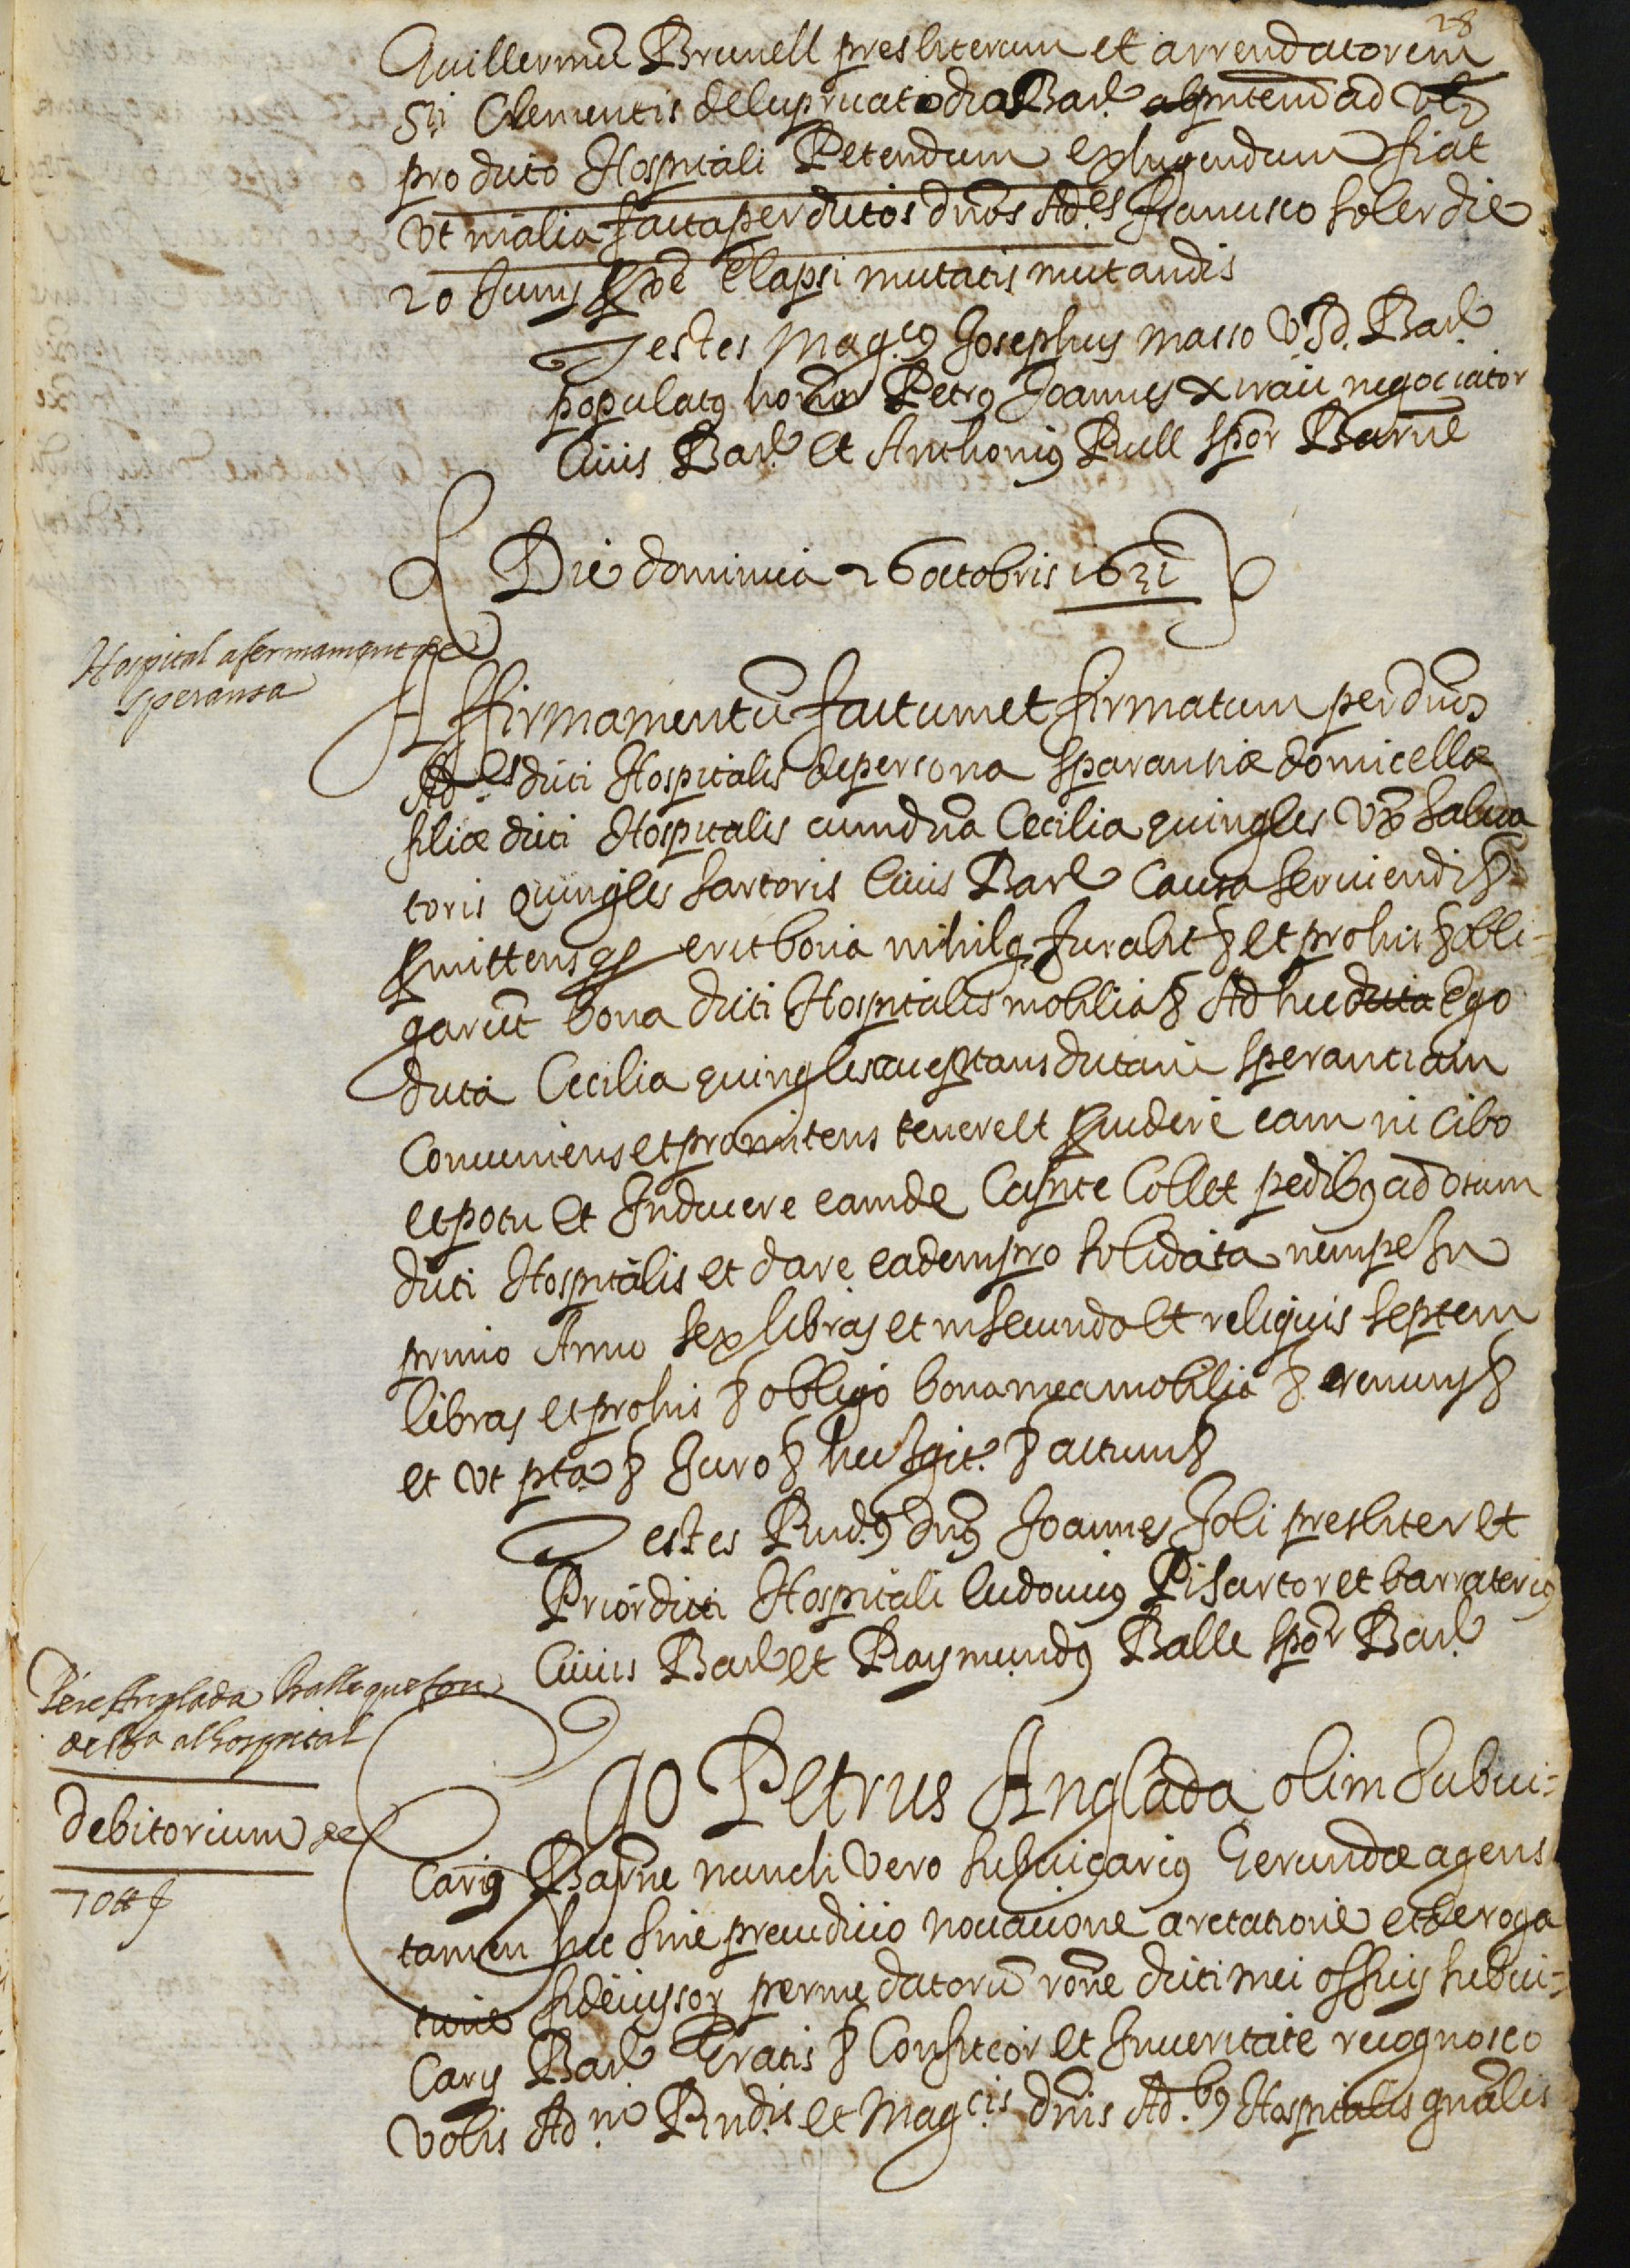 28
Guillermũ Brunell presbiterum et arrendatorem
Sti Clementis
pro dicto Hospitali Petendum exhigendum fiat
Vt in alia facta per dictos dños Ad.es Francisco Soler die
20 Junij elapsi mutatis mutandis
Testes Mag.cus Josephus Masso V.J.d. Barl
populatus Petrus Joannes negociator
Civis Barl et Anthonius Rull spor Barne
Die dominica 26 octobris 1631
Hospital afermament de
Speransa
Affirmamentũ factum et firmatum per dños
Ad.es dicti Hospitalis de persona Sparantiæ domicellæ
filiæ dicti Hospitalis cum dña Cecilia Quingles Vx Salva
toris Quingles Sartoris Civis Barl Causa serviendi &
erit bona nihilq &et pro his & obli-
garũt bona dicti Hospitalis mobilia & Ad hec Ego
dicta Cecilia Quingles acceptans dictam Sperantiam
Conveniens et promitens tenere et eam in cibo
et potu et Induere eam de pedibus ad
dicti Hospitalis et dare eadem pro solidata nempe In
primo Anno sex libras et in secundo et reliquis septem
libras et pro his & obligo bona mea mobilia &
et Vt pta & Juro & hec igit. & actum &
Testes Rnd.us dñs Joannes Joli presbiter et
Prior dicti Hospitali Ludovicus Pi Sartor et barraterius
Civis Barl et Raymundus Balle spor Barl
Pere Anglada Balle que fou
al hospital
debitorium de
70 ₶
Ego Petrus Anglada olim Subvi-
carius Barñe nunch vero subvicarius Gerundæ agens
tamen hec sine preiudicio novatione arctatione et deroga
tione fideiussor per me datorũ roñe dicti mei officij subvi-
carij Barl Gratis & Confiteor et In veritate recognosco
Vobis Ad.m Rnd.is et Mag.cis dñis Ad.bus Hospitalis gñalis